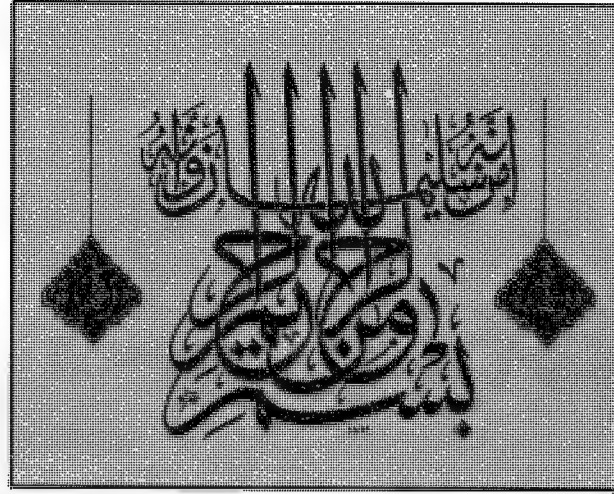 إنه من سليمان وإنه
بسم الله الرحمن الرحيم